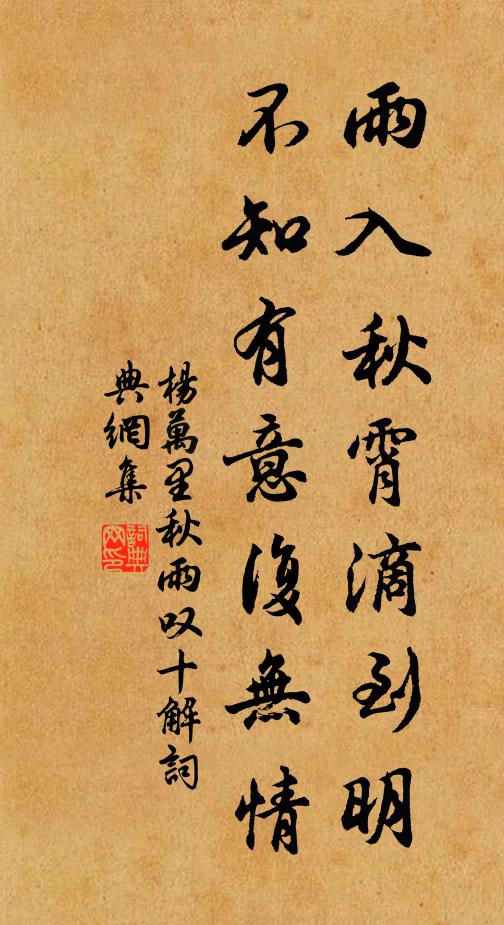 雨入秋霄滴到明
不知有意復無情
楊萬里秋雨叹十解詞
典網集
詞典
网印